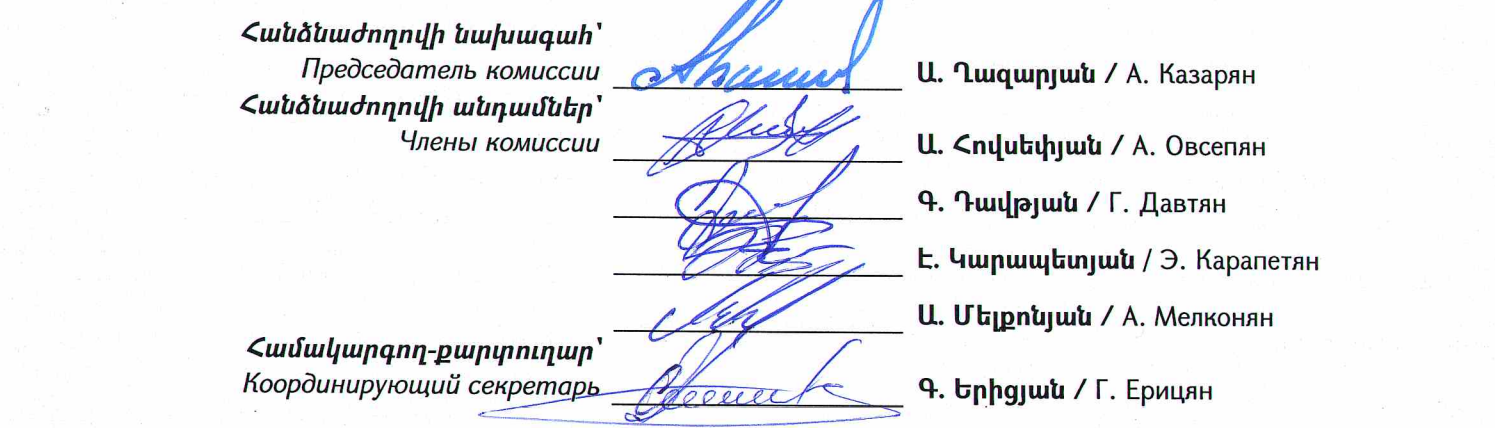 Հանձնաժողովի նախագահ՝
Председатель комиссии
Ա. Ղազարյան / А. Казарян
Հանձնաժողովի անդամներ՝
Члены комиссии
Ա. Հովսեփյան / А. Овсепян
Գ. Դավթյան / Г. Давтян
Է. Կարապետյան / Э. Карапетян
Ա. Մելքոնյան / А. Мелконян
Համակարգող-քարտուղար՝
Координирующий секретарь
Գ. Երիցյան / Г. Ерицян